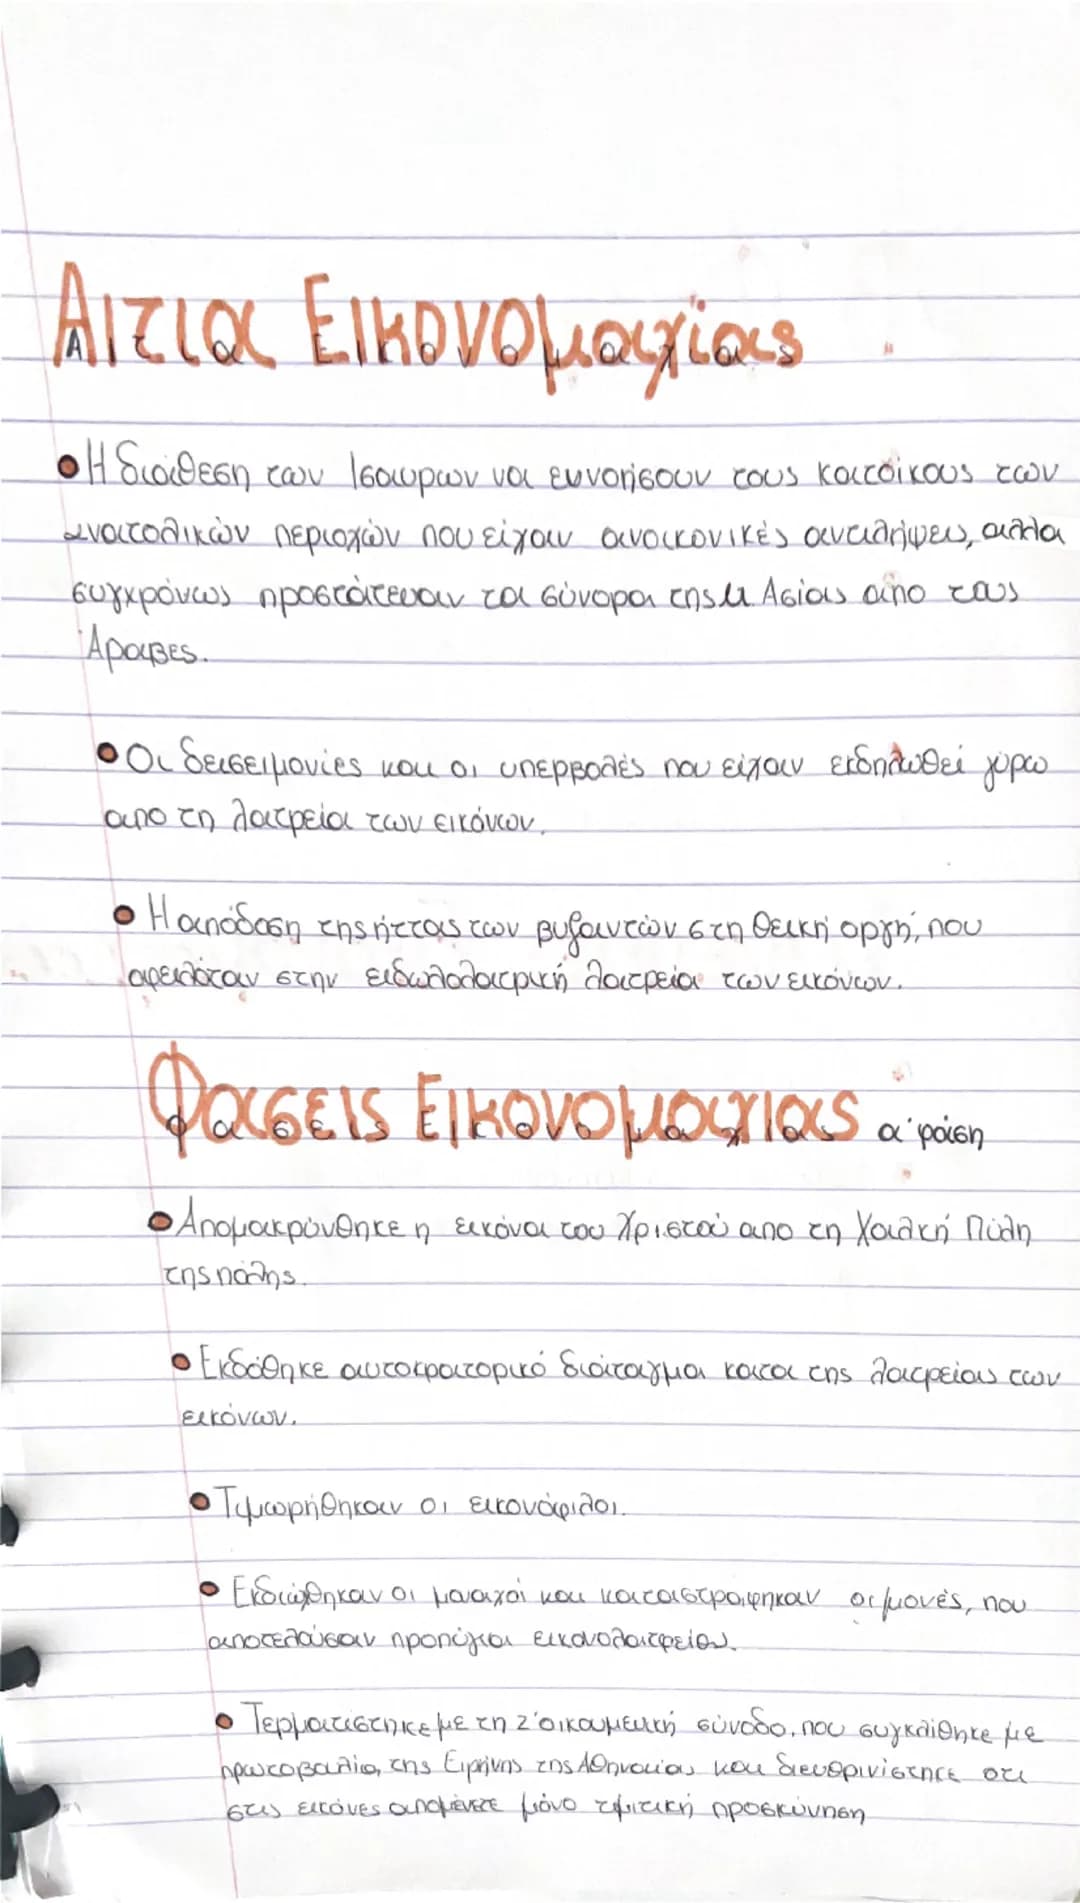 Αιτια Εικονομαχίας
• Η διάθεση των Ισαυρων να ευνοήσουν τους κατοίκους των
ανατολικών περιοχών που είχαν ανεικονικές αντιλήψεις, αλλα
συγχρόνως προστάτευαν τα σύνορα της Μ Ασίας απο τους
Άραβες.
• Οι δεισειμονίες και οι υπερβολές που είχαν εκδηλωθεί γύρω
απο τη λατρεία των εικόνων.
• Η απόδοση της ήττας των βυζαντών στη θεική οργή, που
οφειλόταν στην ειδωλολατρική λατρεία των εικόνων.
Φασεις Εικονομαχιας α' φάση
• Απομακρύνθηκε η εικόνα του Χριστού απο τη Χαλκή Πύλη
της πόλης.
• Εκδόθηκε αυτοκρατορικό διάταγμα κατα της λατρείας των
εικόνων.
• Τιμωρήθηκαν οι εικονόφιλοι.
• Εκδιώχθηκαν οι μοναχοί και καταστραφηκαν οι μονές, που
αποτελούσαν προπύγια εικονολατρείας.
• Τερματιστηκε με τη Ζ' οικουμενική σύνοδο, που συγκλίθηκε με
πρωτοβαλία της Ειρήνης της Αθηναίας και διευθρινίστηκε οτι
στις εικόνες απομένετε μόνο τιμιτική προσκύνηση